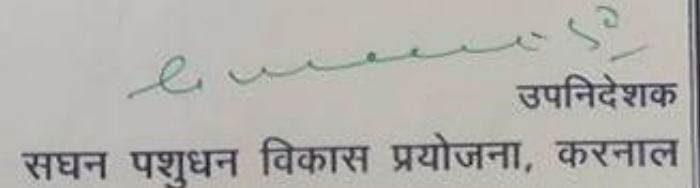 उपनिदेशक
सघन पशुधन विकास प्रयोजना, करनाल